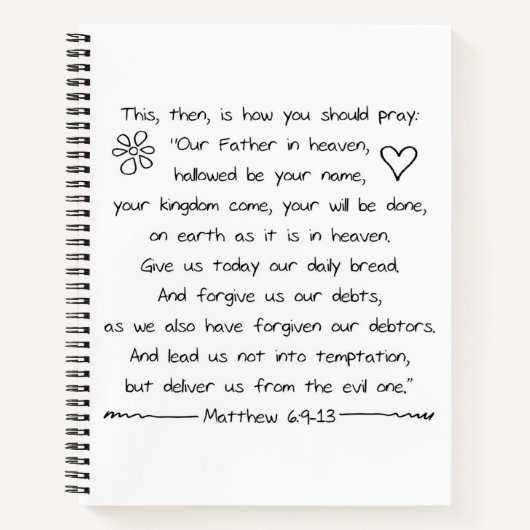 This, then, is how you should pray:
"Our Father in heaven,
hallowed be your name,
your kingdom come, your will be done,
on earth as it is in heaven.
Give us today our daily bread.
And forgive us our debts,
as we also have forgiven our debtors.
And lead us not into temptation,
but deliver us from the evil one."
Matthew 6:9-13